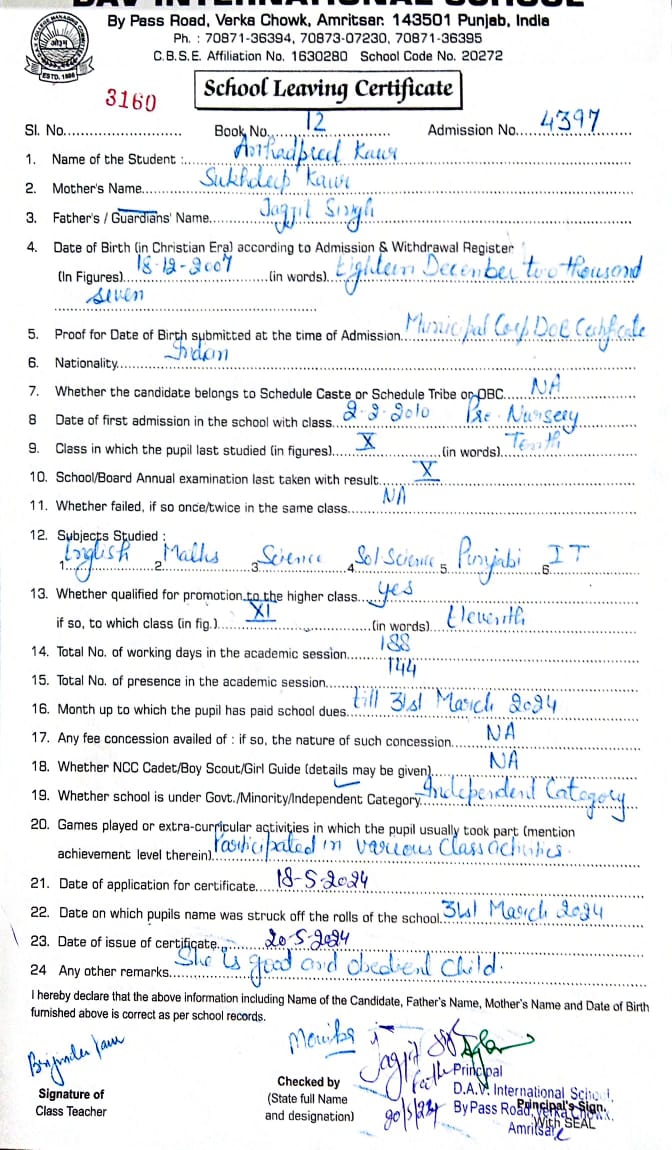 DAV INTERNATIONAL SCHOOL
By Pass Road, Verka Chowk, Amritsar. 143501 Punjab, India
Ph. : 70871-36394, 70873-07230, 70871-36395
C.B.S.E. Affiliation No. 1630280 School Code No. 20272
ESTD. 1886
School Leaving Certificate
3160
Sl. No. Book No. 12 Admission No. 4397
1. Name of the Student : Kaur
2. Mother's Name Sukhdeep Kaur
3. Father's / Guardians' Name Jagjit Singh
4. Date of Birth (in Christian Era) according to Admission & Withdrawal Register
(In Figures) 18-12-2007 (in words) Eighteen December two thousand
seven
5. Proof for Date of Birth submitted at the time of Admission Municipal Corp DOB Certificate
6. Nationality Indian
7. Whether the candidate belongs to Schedule Caste or Schedule Tribe or OBC NA
8 Date of first admission in the school with class 2-2-2010 Pre-Nursery
9. Class in which the pupil last studied (in figures) X (in words) Tenth
10. School/Board Annual examination last taken with result X
11. Whether failed, if so once/twice in the same class NA
12. Subjects Studied :
1 English 2 Maths 3 Science 4 Sol Science 5 Punjabi 6 IT
13. Whether qualified for promotion to the higher class yes
if so, to which class (in fig.) XI (in words) Eleventh
14. Total No. of working days in the academic session 188
15. Total No. of presence in the academic session 144
16. Month up to which the pupil has paid school dues till 31st March 2024
17. Any fee concession availed of : if so, the nature of such concession NA
18. Whether NCC Cadet/Boy Scout/Girl Guide (details may be given) NA
19. Whether school is under Govt./Minority/Independent Category Independent Category
20. Games played or extra-curricular activities in which the pupil usually took part (mention
achievement level therein) Participated in various Class activities.
21. Date of application for certificate 18-5-2024
22. Date on which pupils name was struck off the rolls of the school 31st March 2024
23. Date of issue of certificate 20-5-2024
24 Any other remarks She is good and obedient child.
I hereby declare that the above information including Name of the Candidate, Father's Name, Mother's Name and Date of Birth
furnished above is correct as per school records.
Jagjit
Father
20/5/24
Signature of
Class Teacher
Checked by
(State full Name
and designation)
Principal
D.A.V. International School,
By Pass Road, Verka Chowk,
Amritsar
Principal's Sign.
With SEAL